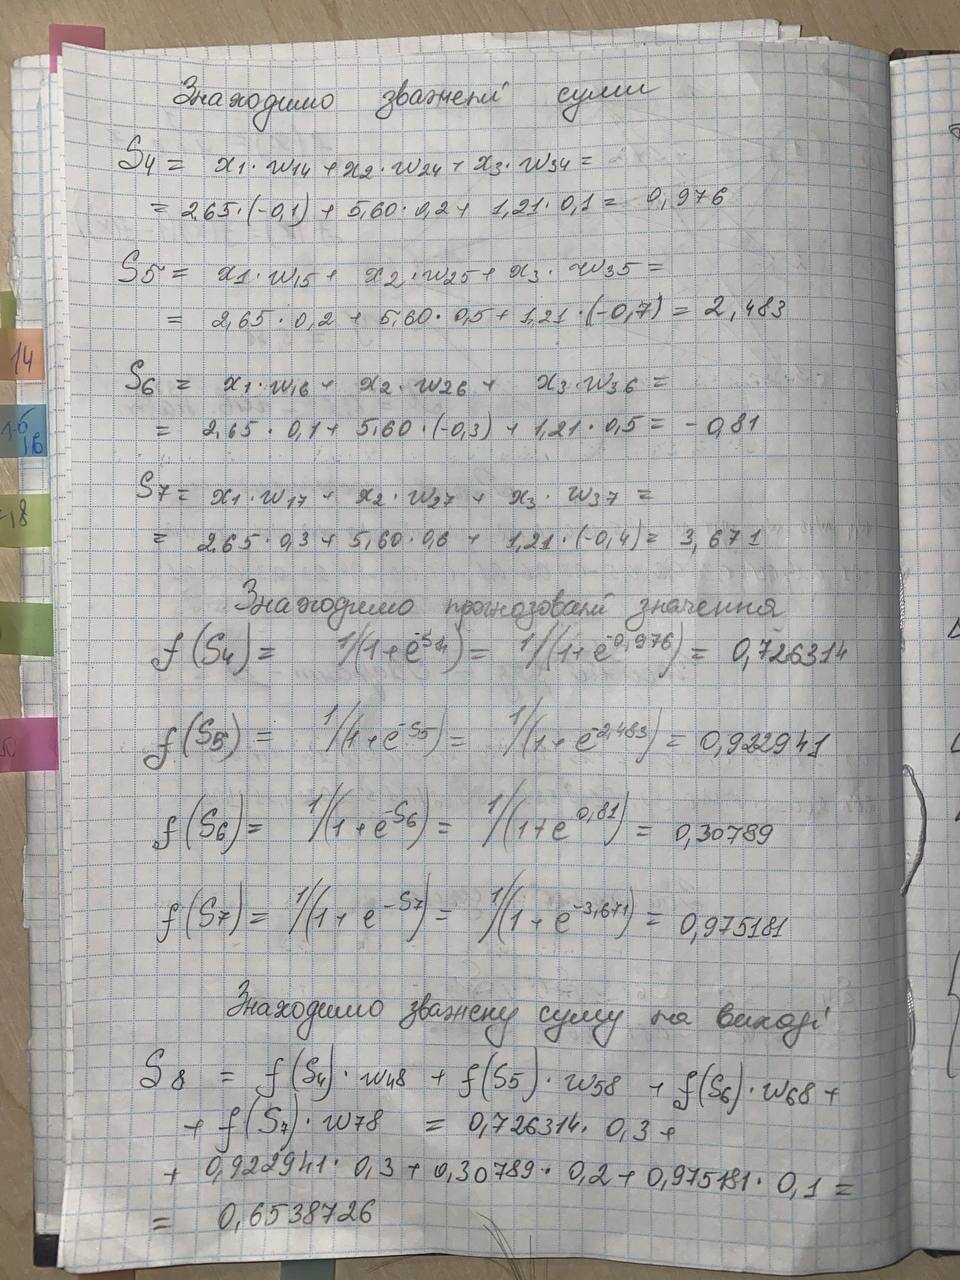 Знаходимо зважені суми
S4 = x1·w14 + x2·w24 + x3·w34 =
= 2,65·(-0,1) + 5,60·0,2 + 1,21·0,1 = 0,976
S5 = x1·w15 + x2·w25 + x3·w35 =
= 2,65·0,2 + 5,60·0,5 + 1,21·(-0,7) = 2,483
S6 = x1·w16 + x2·w26 + x3·w36 =
= 2,65·0,1 + 5,60·(-0,3) + 1,21·0,5 = -0,81
S7 = x1·w17 + x2·w27 + x3·w37 =
= 2,65·0,3 + 5,60·0,6 + 1,21·(-0,4) = 3,671
Знаходимо прогнозовані значення
f(S4) = 1/(1+e^-S4) = 1/(1+e^-0,976) = 0,726314
f(S5) = 1/(1+e^-S5) = 1/(1+e^-2,483) = 0,922941
f(S6) = 1/(1+e^-S6) = 1/(1+e^0,81) = 0,30789
f(S7) = 1/(1+e^-S7) = 1/(1+e^-3,671) = 0,975181
Знаходимо зважену суму на виході
S8 = f(S4)·w48 + f(S5)·w58 + f(S6)·w68 +
+ f(S7)·w78 = 0,726314·0,3 +
+ 0,922941·0,3 + 0,30789·0,2 + 0,975181·0,1 =
= 0,6538726
14